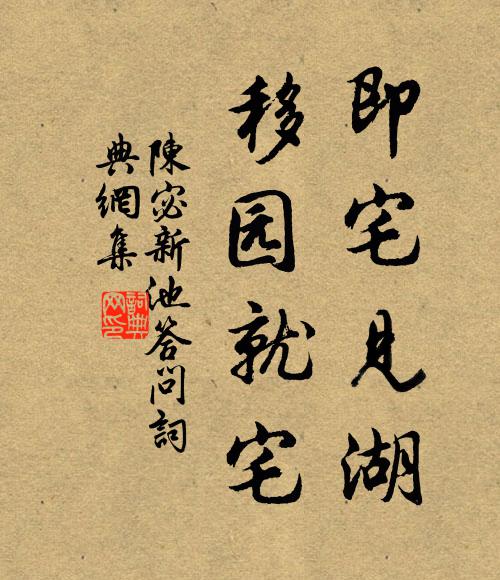 即宅见湖
移园就宅
陳宓新池答問詞
典網集
詞典网印